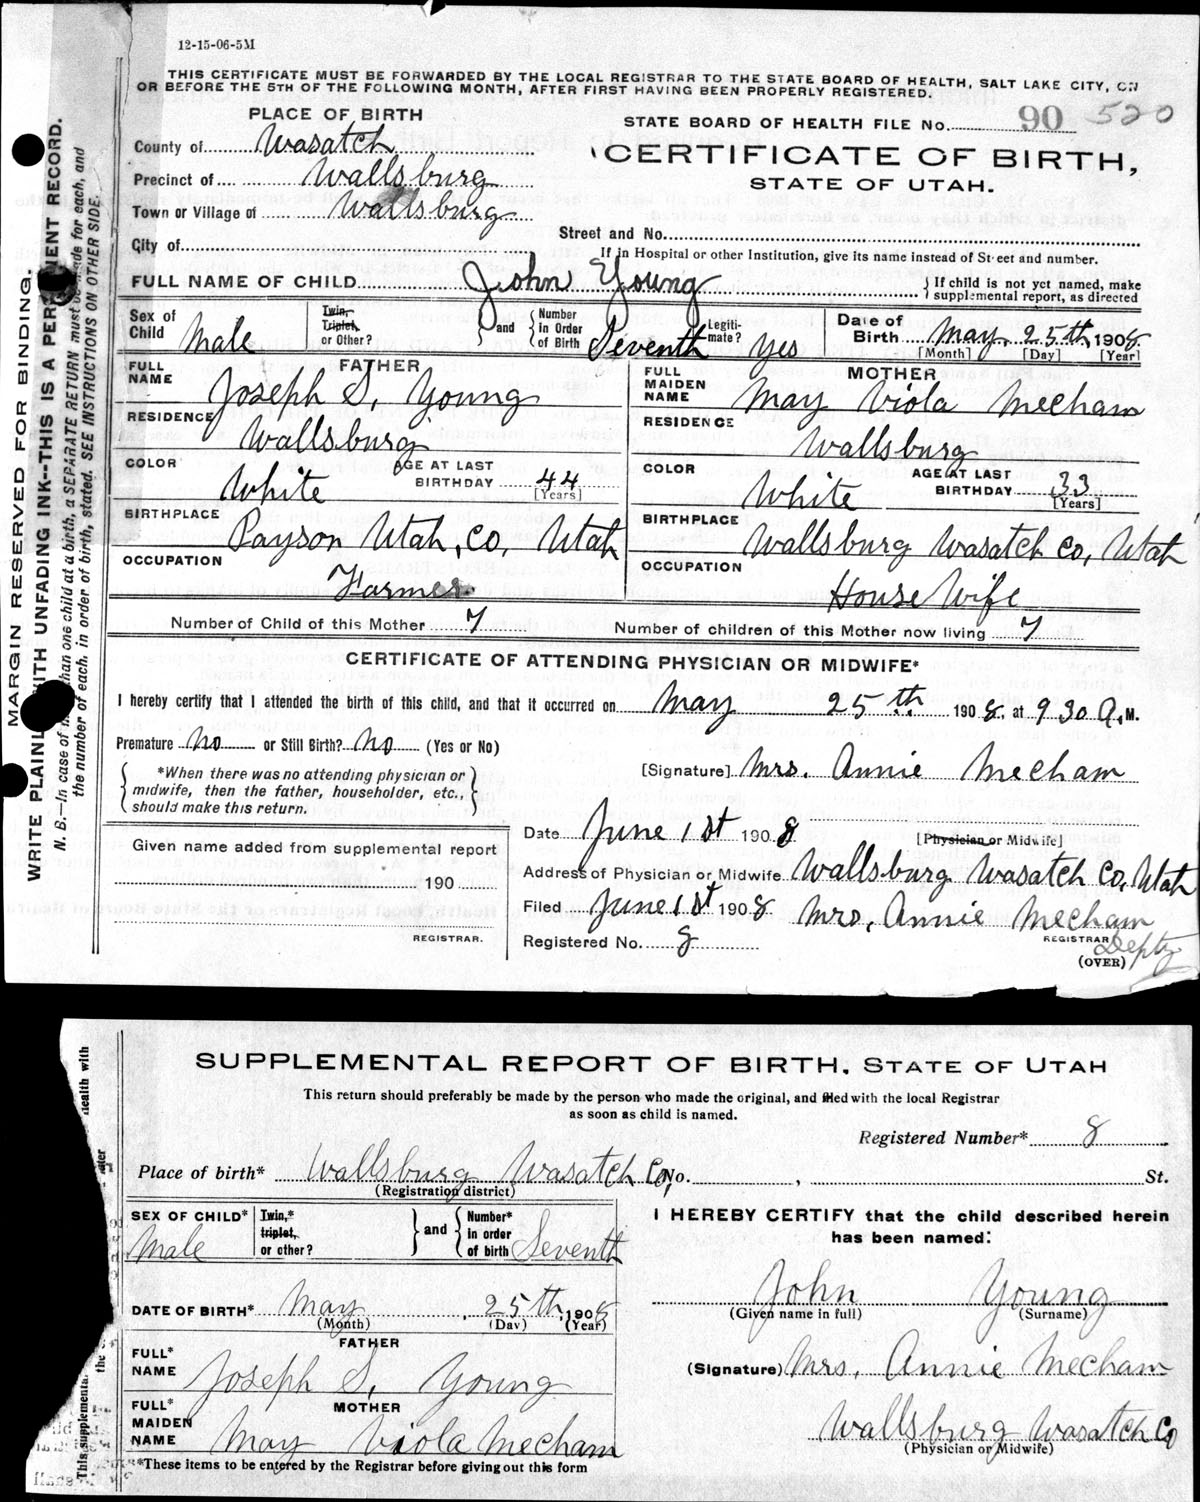 12-15-06-5M
THIS CERTIFICATE MUST BE FORWARDED BY THE LOCAL REGISTRAR TO THE STATE BOARD OF HEALTH, SALT LAKE CITY, ON
OR BEFORE THE 5TH OF THE FOLLOWING MONTH, AFTER FIRST HAVING BEEN PROPERLY REGISTERED.
PLACE OF BIRTH
STATE BOARD OF HEALTH FILE No. 90 520
County of Wasatch
CERTIFICATE OF BIRTH,
STATE OF UTAH.
Precinct of Wallsburg
Town or Village of Wallsburg
Street and No.
City of
If in Hospital or other Institution, give its name instead of Street and number.
FULL NAME OF CHILD John Young
If child is not yet named, make supplemental report, as directed
Sex of Child Male
Twin, Triplet, or Other?
and Number in Order of Birth Seventh
Legitimate? Yes
Date of Birth May 25th 1908
[Month] [Day] [Year]
FATHER
FULL NAME Joseph S. Young
MOTHER
FULL MAIDEN NAME May Viola Mecham
RESIDENCE Wallsburg
RESIDENCE Wallsburg
COLOR White AGE AT LAST BIRTHDAY 44 [Years]
COLOR White AGE AT LAST BIRTHDAY 33 [Years]
BIRTHPLACE Payson Utah, Co, Utah
BIRTHPLACE Wallsburg Wasatch Co, Utah
OCCUPATION Farmer
OCCUPATION House Wife
Number of Child of this Mother 7
Number of children of this Mother now living 7
CERTIFICATE OF ATTENDING PHYSICIAN OR MIDWIFE*
I hereby certify that I attended the birth of this child, and that it occurred on May 25th 1908, at 9 30 A. M.
Premature No or Still Birth? No (Yes or No)
*When there was no attending physician or
midwife, then the father, householder, etc.,
should make this return.
[Signature] Mrs. Annie Mecham
[Physician or Midwife]
Date June 1st 1908
Given name added from supplemental report
190
REGISTRAR.
Address of Physician or Midwife Wallsburg Wasatch Co, Utah
Filed June 1st 1908 Mrs, Annie Mecham
REGISTRAR Depty
Registered No. 8
(OVER)
MARGIN RESERVED FOR BINDING.
WRITE PLAINLY WITH UNFADING INK--THIS IS A PERMANENT RECORD.
N. B.--In case of more than one child at a birth, a SEPARATE RETURN must be made for each, and
the number of each, in order of birth, stated. SEE INSTRUCTIONS ON OTHER SIDE.
SUPPLEMENTAL REPORT OF BIRTH, STATE OF UTAH
This return should preferably be made by the person who made the original, and filed with the local Registrar
as soon as child is named.
Registered Number* 8
Place of birth* Wallsburg Wasatch Co, No. , St.
(Registration district)
SEX OF CHILD* Male
Twin,* triplet, or other?
and Number* in order of birth Seventh
I HEREBY CERTIFY that the child described herein
has been named:
John Young
(Given name in full) (Surname)
DATE OF BIRTH* May, 25th, 1908
(Month) (Day) (Year)
FATHER
FULL* NAME Joseph S. Young
(Signature) Mrs. Annie Mecham
MOTHER
FULL* MAIDEN NAME May Viola Mecham
Wallsburg Wasatch Co
(Physician or Midwife)
*These items to be entered by the Registrar before giving out this form
This supplemental